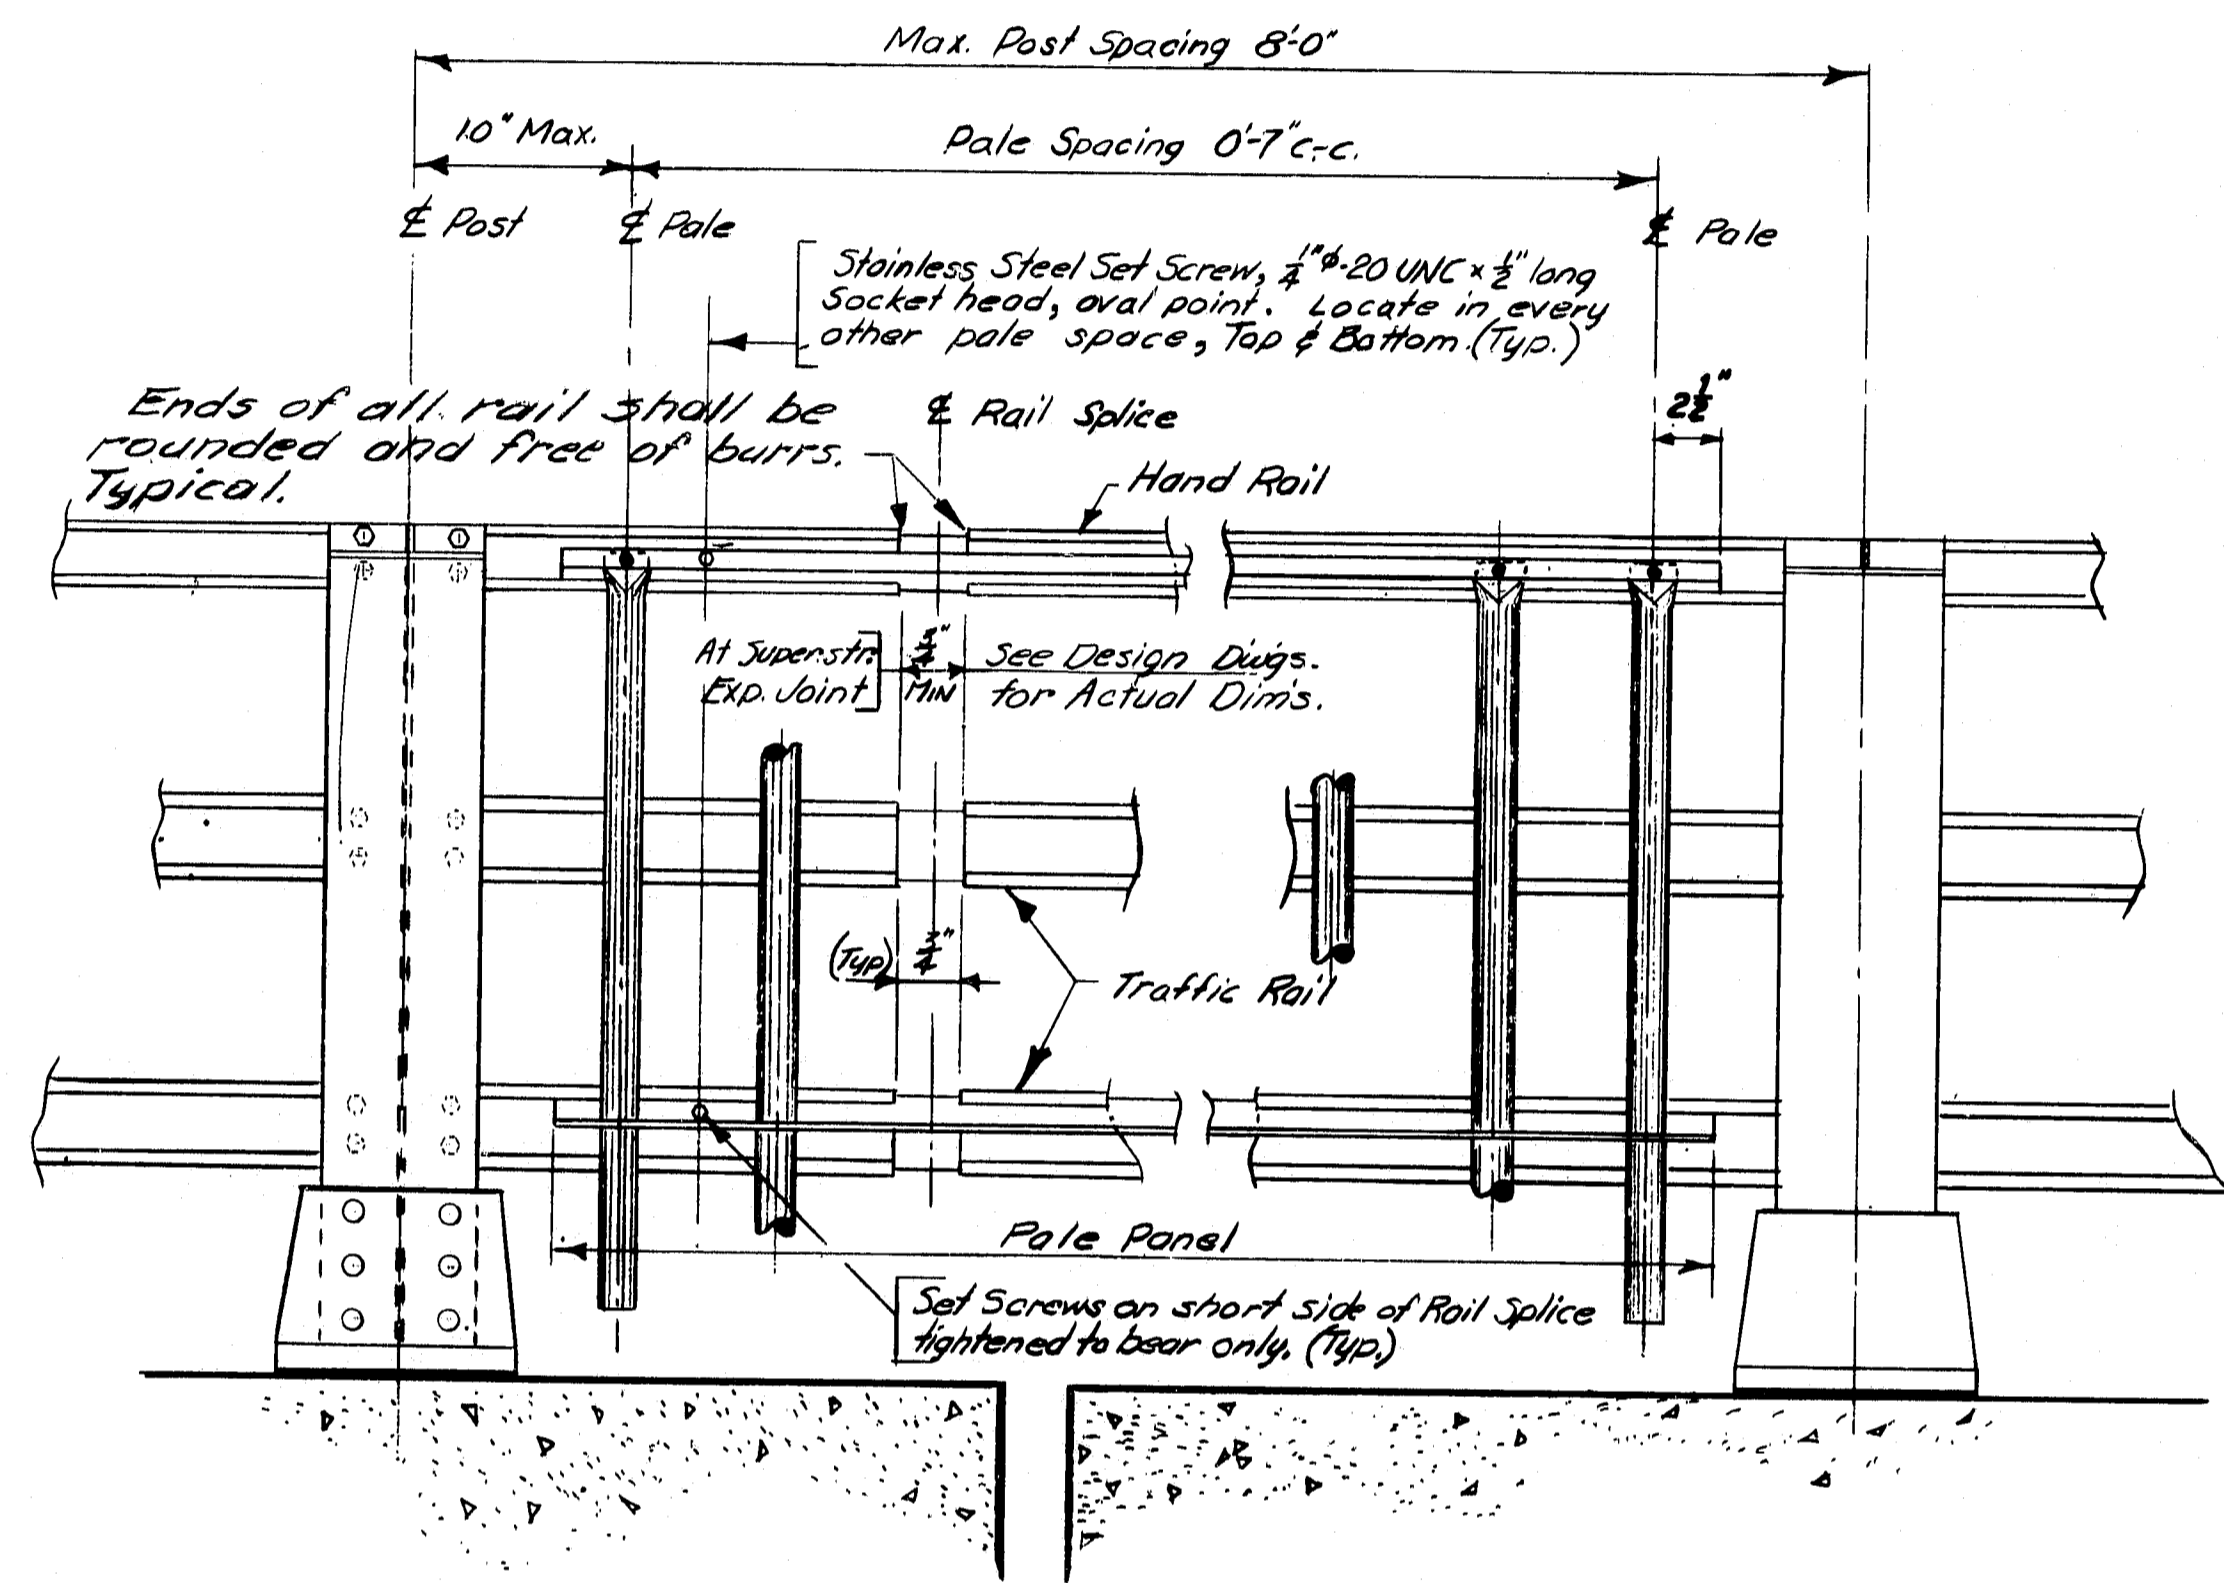 Max. Post Spacing 8'-0"
10" Max.
Pale Spacing 0'-7" c.-c.
℄ Post
℄ Pale
℄ Pale
Stainless Steel Set Screw, 1/4"ϕ-20 UNC x 1/2" long
Socket head, oval point. Locate in every
other pale space, Top & Bottom. (Typ.)
2 1/2"
Ends of all rail shall be
rounded and free of burrs.
Typical.
℄ Rail Splice
Hand Rail
At Superstr.
Exp. Joint
3/4"
MIN
See Design Dwgs.
for Actual Dim's.
(Typ) 3/4"
Traffic Rail
Pale Panel
Set Screws on short side of Rail Splice
tightened to bear only. (Typ.)